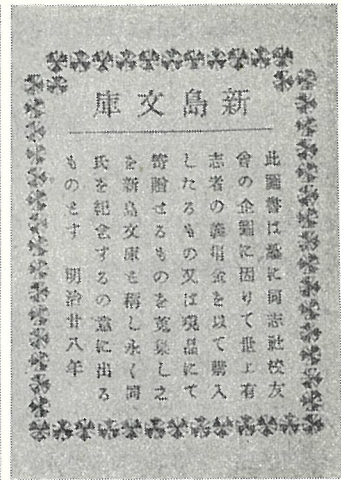 新島文庫
此圖書は曩に同志社校友
會の企圖に因りて世上有
志者の義捐金を以て購入
したるもの又は現品にて
寄贈せるものを蒐集し之
を新島文庫と稱し永く同
氏を紀念するの意に出る
ものとす　明治廿八年